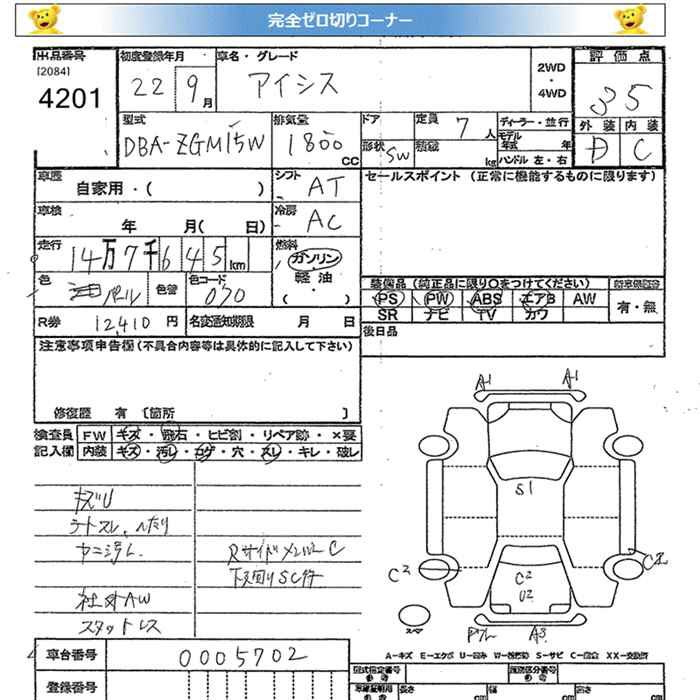 完全ゼロ切りコーナー
出品番号
[2084]
4201
初度登録年月
22 9月
車名・グレード
アイシス
2WD
・
4WD
評価点
35
外装 内装
D C
型式
DBA-ZGM15W
排気量
1800 CC
ドア
形状 SW
定員 7 人
積載 kg
ディーラー・並行
モデル年式 年
ハンドル 左・右
車歴
自家用・( )
シフト AT
車検
年 月( 日)
冷房 AC
走行
14万7千645km
燃料
ガソリン
軽油
( )
色
パール
色替
色コード
070
R券 12,410 円
名変通知期限 月 日
セールスポイント (正常に機能するものに限ります)
装備品(純正品に限り○をつけてください)
PS PW ABS エアB AW
SR ナビ TV カワ
有・無
後日品
注意事項申告欄(不具合内容等は具体的に記入して下さい)
修復歴 有 [箇所 ]
検査員 FW キズ・飛石・ヒビ割・リペア跡・×要
記入欄 内装 キズ・汚レ・コゲ・穴・スレ・キレ・破レ
キズU
シートスレ、ヘタリ
ヤニ汚レ
社外AW
スタッドレス
下回りSC付
A1 A1
S1
C2
C2
C2
U2
A3
スペア
A-キズ E-エクボ U-凹み W-補修跡 S-サビ C-腐食 XX-交換済
車台番号 0005702
登録番号
型式指定番号
類別区分番号
長さ cm
幅 cm
高さ cm